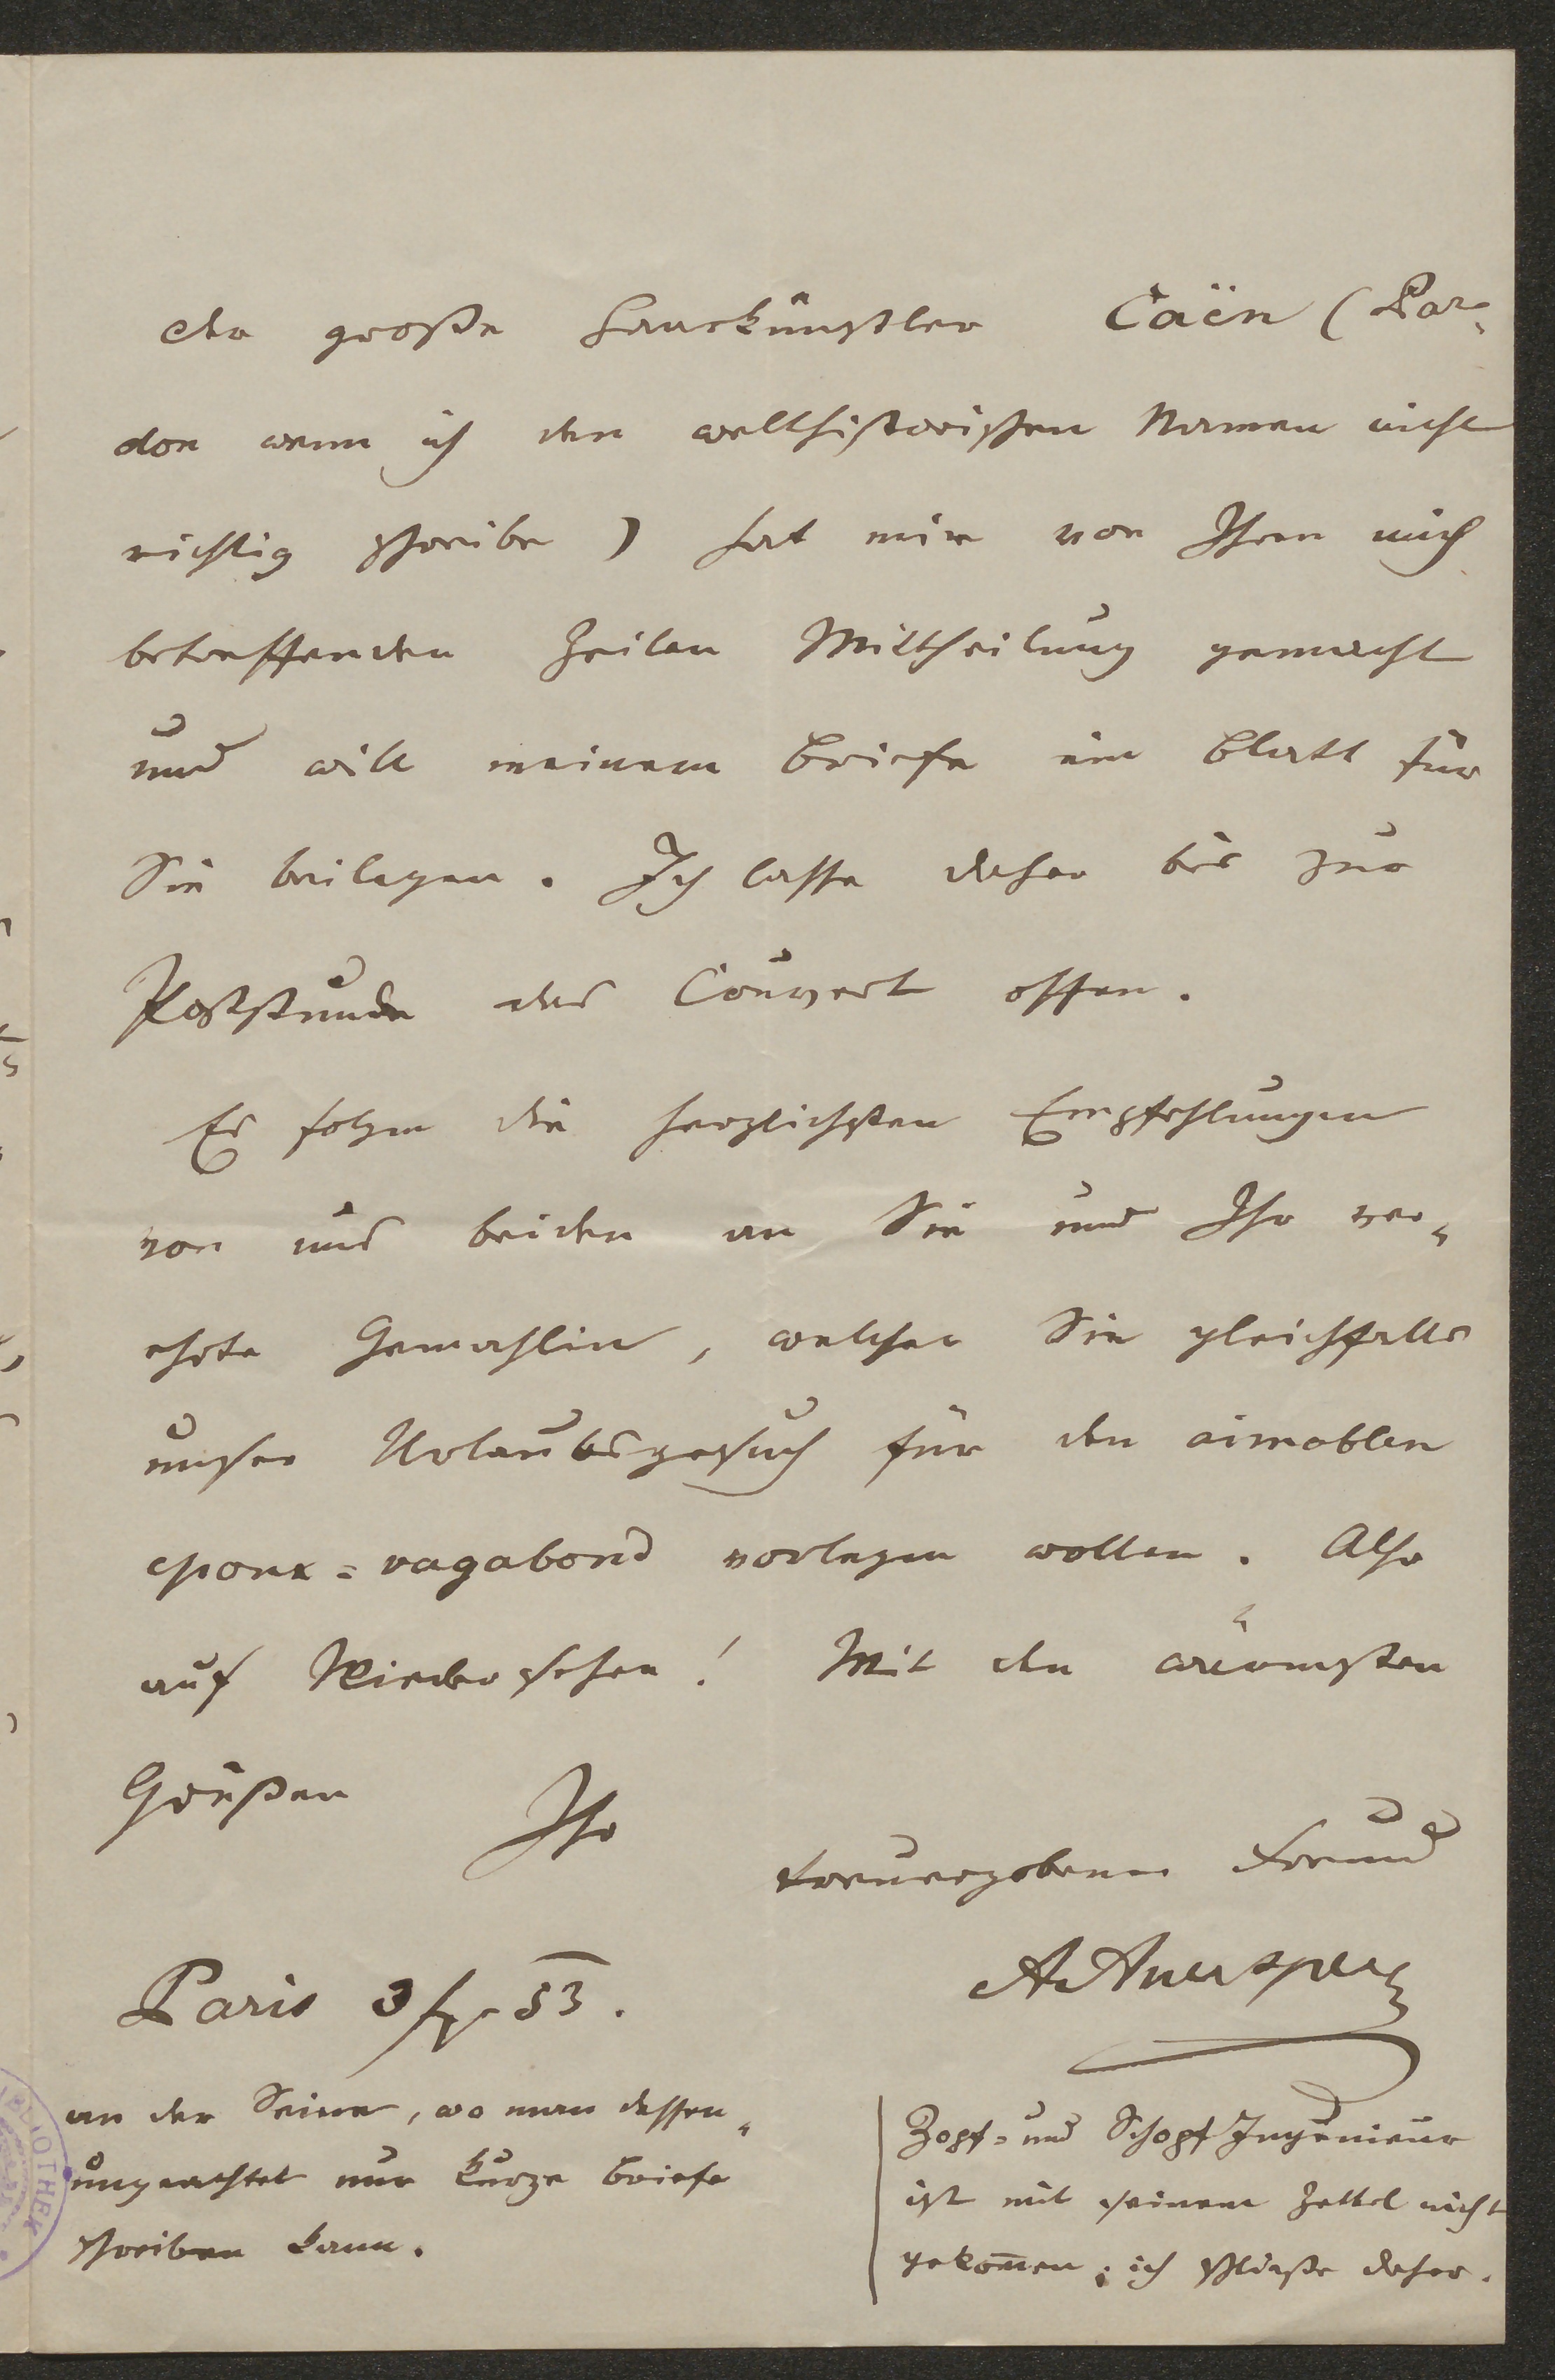 der große Haarkünstler Caën (Par-
don wenn ich den welthistorischen Namen nicht
richtig schreibe) hat mir von Ihren mich
betreffenden Zeilen Mittheilung gemacht
und will meinem Briefe ein Blatt für
Sie beilegen. Ich lasse daher bis zur
Poststunde das Couvert offen.
Es folgen die herzlichsten Empfehlungen
von uns beiden an Sie und Ihre ver-
ehrte Gemahlin, welcher Sie gleichfalls
unser Urlaubsgesuch für den aimablen
epoux-vagabond vorlegen wollen. Also
auf Wiedersehen! Mit den wärmsten
Grüßen Ihr
treuergebener Freund
AAuersperg
Paris 53.
an der Seine, wo man dessen-
ungeachtet nur kurze Briefe
schreiben kann.
Zopf- und Schopf Ingenieur
ist mit seinem Zettel nicht
gekom̄en; ich schließe daher.